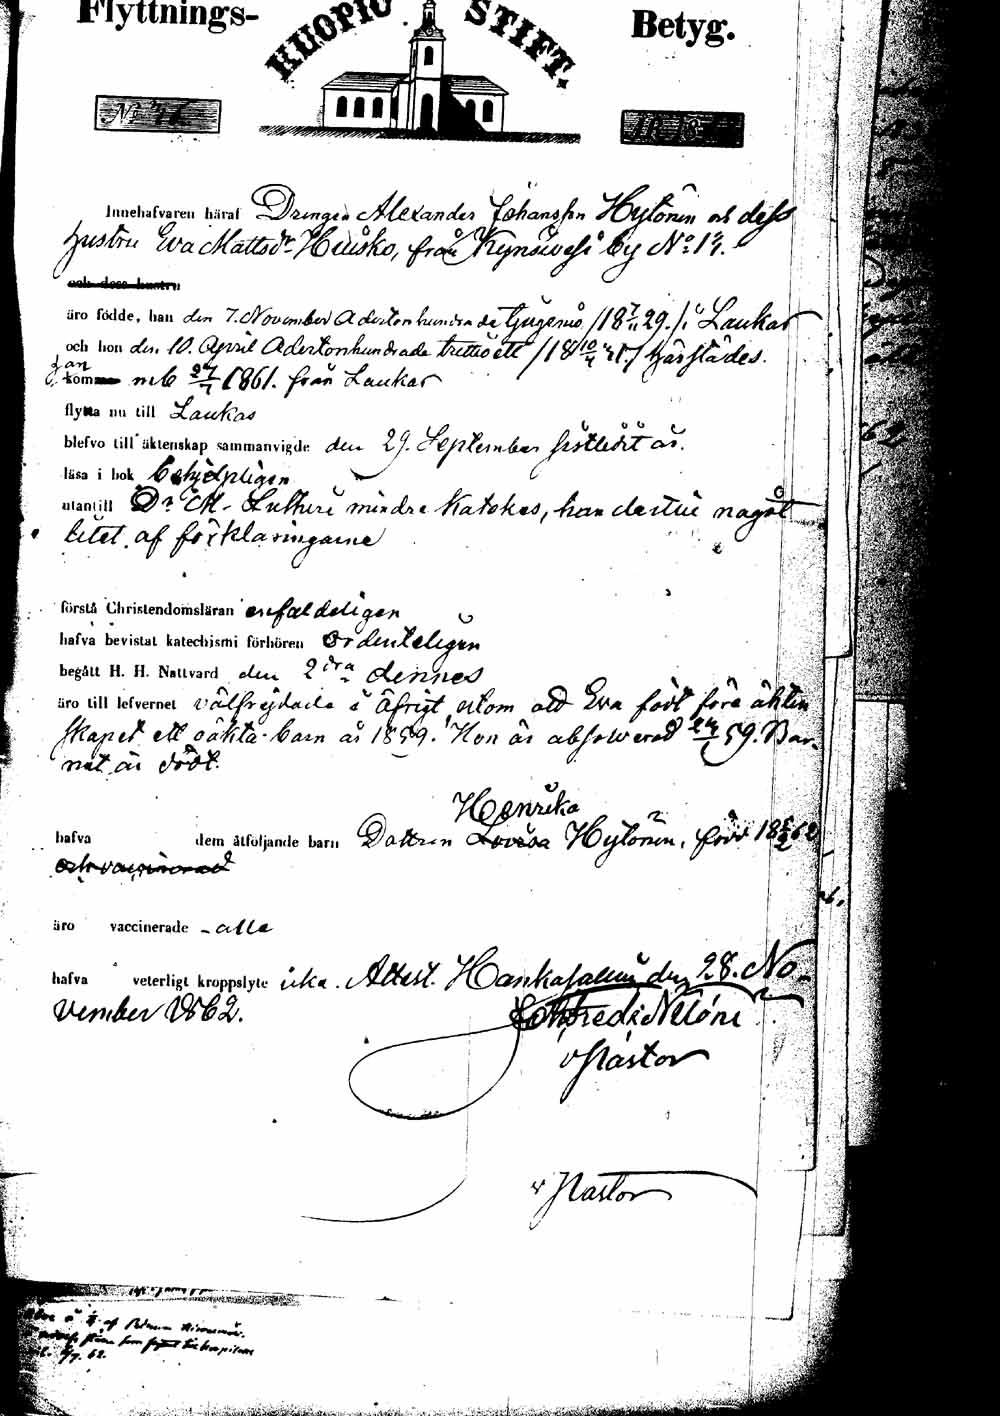 Flyttnings-
KUOPIO STIFT.
Betyg.
Innehafvaren häraf Drengen Alexander Johansson Hytönen och dess
hustru Eva Mattsdr Husko, från Kynsivesi by No 17.
och dess hustru
äro födde, han den 7. November Adertonhundrade tjugenio /18 7/11 29./ i Laukas
och hon den 10. April Adertonhundrade trettioett /18 10/4 31./ härstädes.
kom 1861. från Laukas
flytta nu till Laukas
blefvo till äktenskap sammanvigde den 29. September sistledit år.
läsa i bok behjelpligen
utantill Dr M. Lutheri mindre Katekes, han dertill något
litet af förklaringarne
förstå Christendomsläran enfaldeligen
hafva bevistat katechismi förhören ordenteligen
begått H. H. Nattvard den 2dra dennes
äro till lefvernet välfrejdade i öfrigt utom att Eva födt före äkten
skapet ett oäkta barn år 1859. Hon är absolverad 59. Bar-
net är dödt.
Henrika
hafva dem åtföljande barn Dottren Lovisa Hytönen, född 18 62
och vaccinerad
äro vaccinerade - alla
hafva veterligt kroppslyte icke. Attest. Hankasalmi den 28. No-
vember 1862.
v Pastor
v Pastor